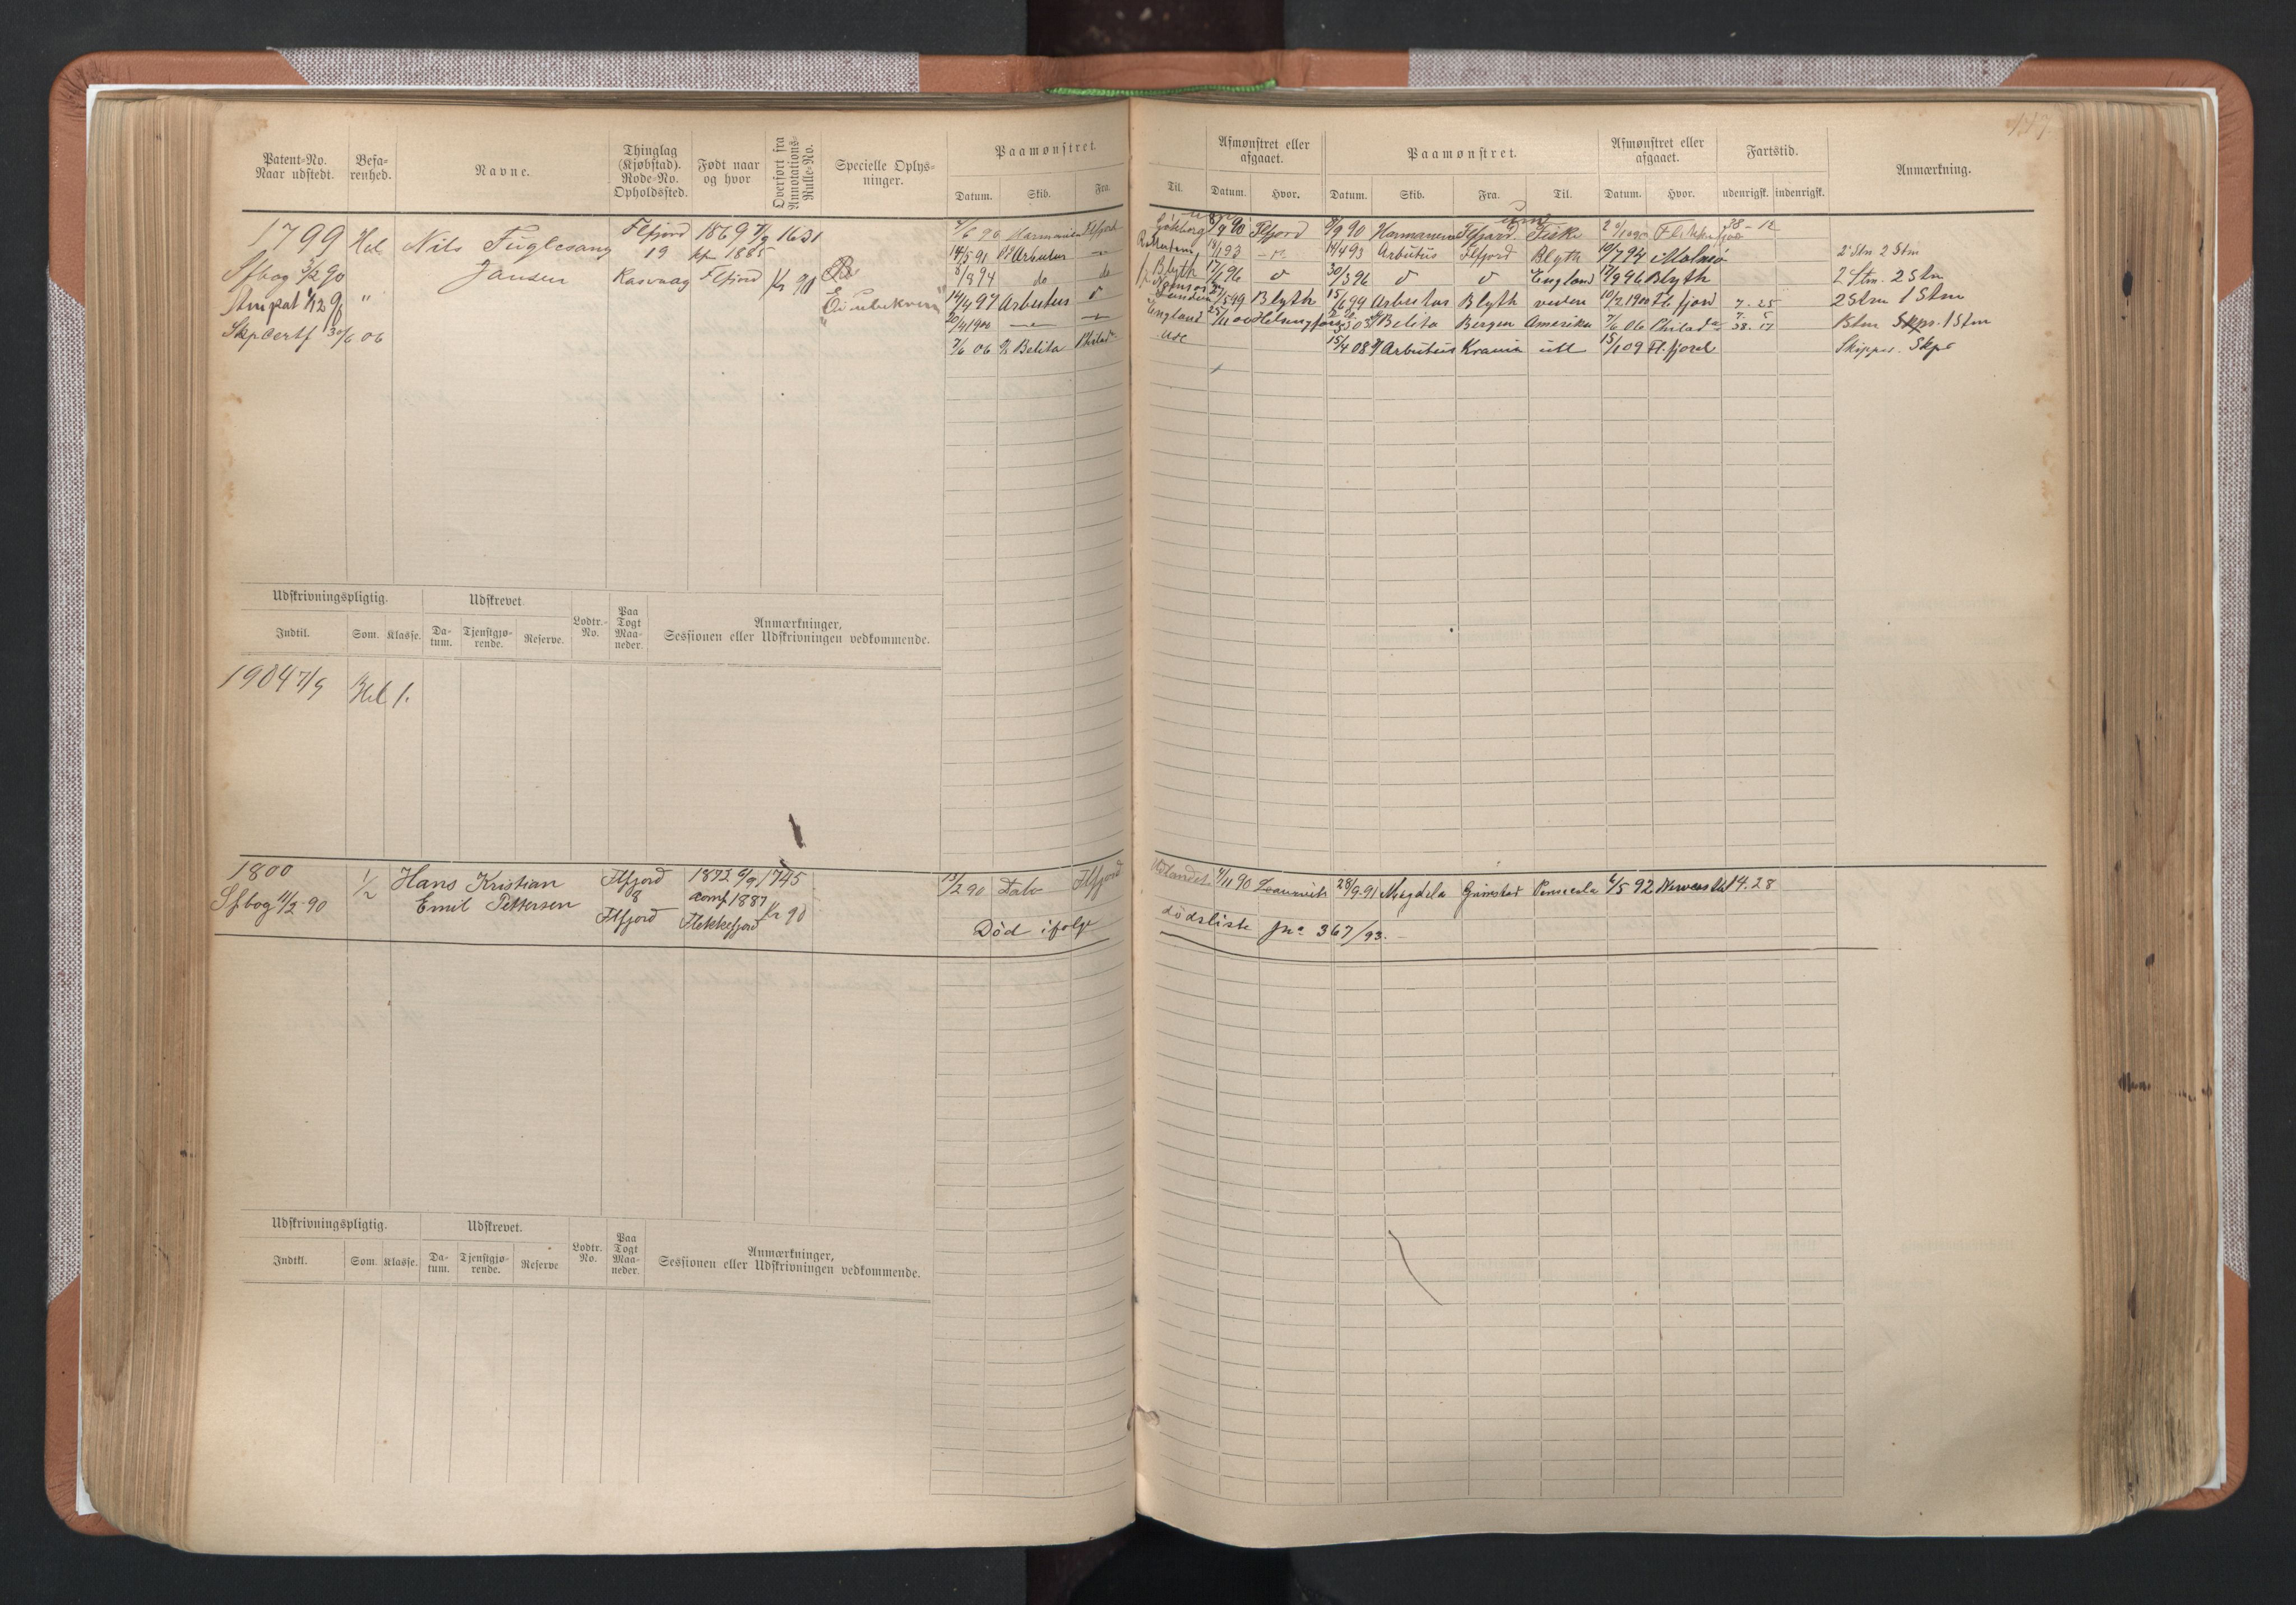 Patent-No. Naar udstedt.
Befarenhed.
Navne.
Thinglag (Kjøbstad). Rode-No. Opholdssted.
Født naar og hvor
Overført fra Annotations-Rulle-No.
Specielle Oplysninger.
Paamønstret.
Datum. Skib. Fra.
Til.
Afmønstret eller afgaaet.
Datum. Hvor.
Paamønstret.
Datum. Skib. Fra. Til.
Afmønstret eller afgaaet.
Datum. Hvor.
Fartstid.
udenrigsk. indenrigsk.
Anmærkning.
1799 Hel Nils Fuglesang Flfjord 1869 7/9 1631
Sfbog 3/2 90 Jansen 19 kfm 1885
Rasvaag Flfjord Kr 90
Skpcertf 30/6 06
Ei ubekvem
Göteborg 8/9 90 Flfjord 9/9 90 Flfjord Fiske 38-12
14/5 91 Arbutus 14/4 93 Arbutus Flfjord Blyth 10/7 94 Malmö 2 Stm 2 Stm
8/9 94 do do Blyth 17/1 96 30/3 96 England 17/9 96 Blyth 2 Stm. 2 Stm
14/4 97 Arbutus London Blyth 15/6 99 Arbutus Blyth verden 10/2 1900 Fl.fjord 7.25 2 Stm 1 Stm
20/4 1900 England Helsingfors Belita Bergen Amerika 7/6 06 Philada 38.17 Bstm Skpr. 1 Stm
7/6 06 Belita Philada Ude 15/4 08 Arbutus Krania utl 15/1 09 Fl.fjord Skipper. Skpr
Udskrivningspligtig.
Indtil. Som. Klasse.
Udskrevet.
Datum. Tjenstgjørende. Reserve.
Lodtr.-No.
Paa Togt Maaneder.
Anmærkninger,
Sessionen eller Udskrivningen vedkommende.
1904 7/9 Hel 1.
1800 1/2 Hans Kristian Flfjord 1872 9/9 1745
Sfbog 11/2 90 Emil Pettersen 8 comf 1887
Flfjord Flekkefjord Kr 90
13/2 90 Flfjord Udlandet 9/11 90 28/9-91 Magdela Grimstad Pensecola 6/5 92 Newcastle 14.28
Död ifølge dödsliste Jno 367/93.
Udskrivningspligtig.
Indtil. Som. Klasse.
Udskrevet.
Datum. Tjenstgjørende. Reserve
Lodtr. No.
Paa Togt Maaneder.
Anmærkninger,
Sessionen eller Udskrivningen vedkommende.